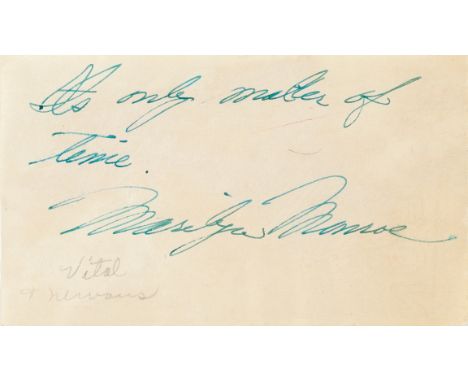 Its only mater of
time.
Marilyn Monroe
Vital
+ nervous